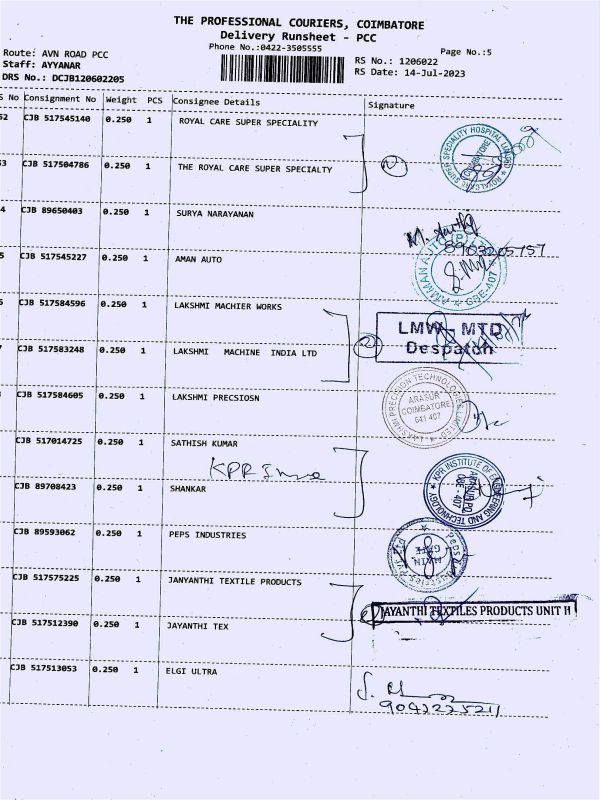 THE PROFESSIONAL COURIERS, COIMBATORE
Delivery Runsheet - PCC
Phone No.:0422-3505555
Page No.:5
Route: AVN ROAD PCC
Staff: AYYANAR
DRS No.: DCJB120602205
RS No.: 1206022
RS Date: 14-Jul-2023
S No Consignment No Weight PCS Consignee Details Signature
52 CJB 517545140 0.250 1 ROYAL CARE SUPER SPECIALITY
3 CJB 517504786 0.250 1 THE ROYAL CARE SUPER SPECIALTY
2
COIMBATORE
4 CJB 89650403 0.250 1 SURYA NARAYANAN
5 CJB 517545227 0.250 1 AMAN AUTO
CJB 517584596 0.250 1 LAKSHMI MACHIER WORKS
CJB 517583248 0.250 1 LAKSHMI MACHINE INDIA LTD
2
LMW - MTD
Despatch
CJB 517584605 0.250 1 LAKSHMI PRECSIOSN
LAKSHMI PRECISION TECHNOLOGIES LIMITED
ARASUR
COIMBATORE
641 407
CJB 517014725 0.250 1 SATHISH KUMAR
KPR
CJB 89708423 0.250 1 SHANKAR
KPR INSTITUTE OF ENGINEERING AND TECHNOLOGY
CJB 89593062 0.250 1 PEPS INDUSTRIES
Peps Industries
MAIN
GATE
CJB 517575225 0.250 1 JANYANTHI TEXTILE PRODUCTS
JAYANTHI TEXTILES PRODUCTS UNIT II
CJB 517512390 0.250 1 JAYANTHI TEX
CJB 517513053 0.250 1 ELGI ULTRA
9042225211